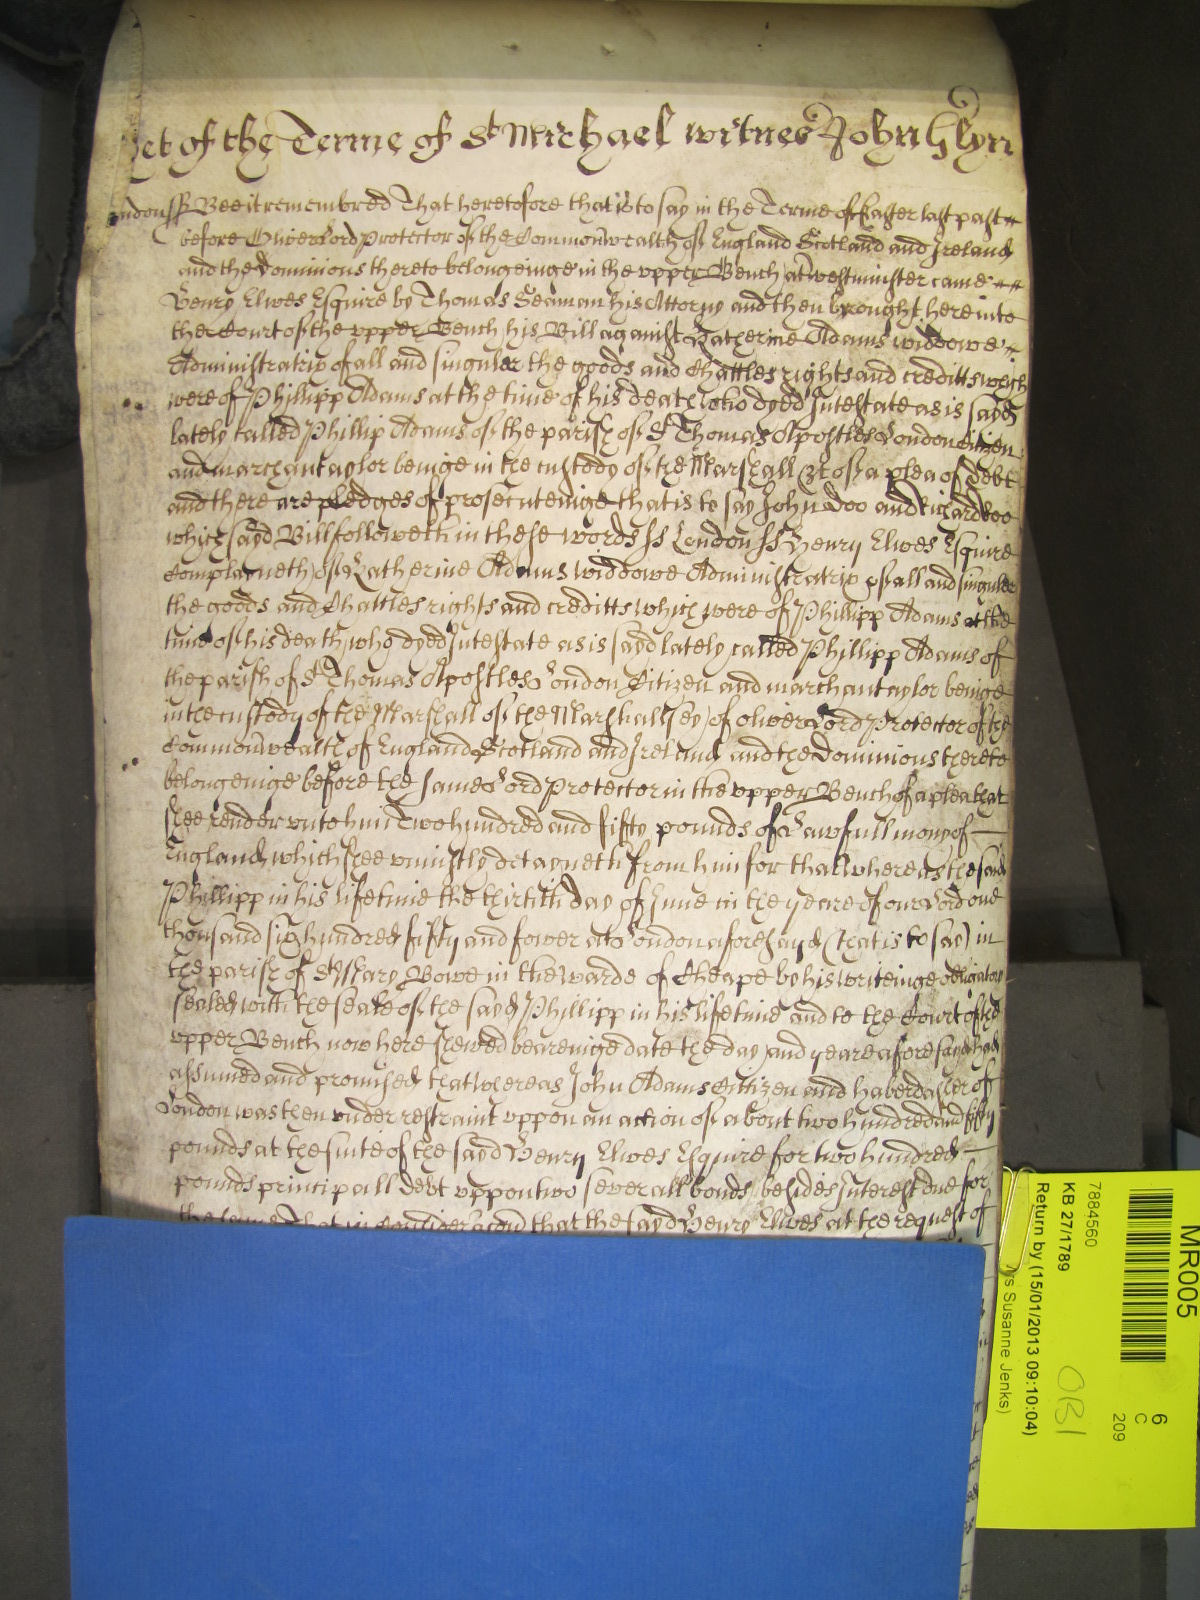 et of the Terme of St Michael witnes John Glyn
ondon ss Bee it remembred That heretofore that is to say in the Terme of Easter last past
before Oliver Lord Protector of the Commonwealth of England Scotland and Ireland
and the Dominions thereto belongeinge in the vpper Bench at Westminster came
Henry Elwes Esquire by Thomas Seaman his Attorny and then brought here into
the Court of the vpper Bench his Bill against Katherine Adams widdowe
Administratrix of all and singuler the goods and Chattles rights and creditts which
were of Phillipp Adams at the time of his death who dyed Intestate as is sayd
lately called Phillip Adams of the parish of St Thomas Apostles London Citizen
and marchantaylor beinge in the custody of the Marshall &c of a plea of debt
and there are pledges of prosecuteinge that is to say John Doo and Richard Roo
which sayd Bill followeth in these words ss London ss Henry Elwes Esquire
Complayneth of Katherine Adams widdowe Administratrix of all and singuler
the goods and Chattles rights and creditts which were of Phillipp Adams at the
time of his death who dyed Intestate as is sayd lately called Phillipp Adams of
the parish of St Thomas Apostles London Citizen and marchantaylor beinge
in the custody of the Marshall of the Marshallsey of Oliver Lord Protector of the
Commonwealth of England Scotland and Ireland and the Dominions thereto
belongeinge before the same Lord Protector in the vpper Bench of a plea that
shee render vnto him Two hundred and fifty pounds of Lawfull mony of
England which shee vniustly detayneth from him for that whereas the said
Phillipp in his lifetime the thirtith day of June in the yeare of our Lord one
thousand six hundred fifty and fower att London aforesayd (that is to say) in
the parish of St Mary Bowe in the warde of Cheape by his writeinge obligatory
sealed with the seale of the sayd Phillipp in his lifetime and to the Court of the
vpper Bench now here shewed beareinge date the day and yeare aforesayd had
assumed and promised that whereas John Adams Cittizen and haberdasher of
London was then vnder restraint vppon an action of about two hundred and fifty
pounds at the suite of the sayd Henry Elwes Esquire for two hundred
pounds principall debt vppon two severall bonds besides Interest due for
the same That in that the sayd Henry Elwes at the request of
MR005
6
C
209
7884560
KB 27/1789
OB1
Return by (15/01/2013 09:10:04)
s Susanne Jenks)